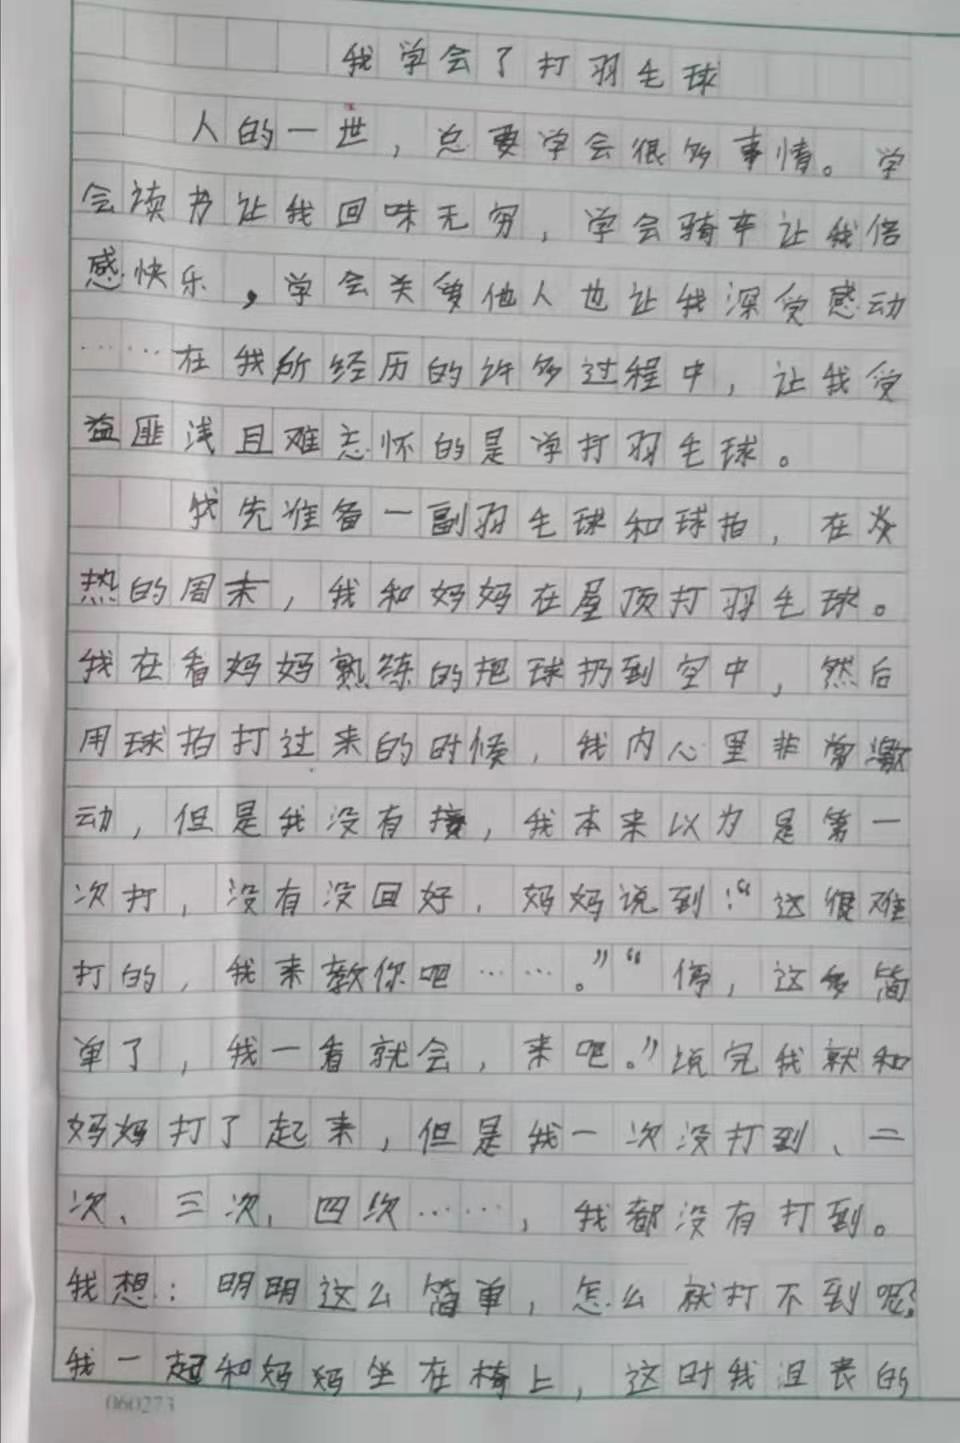 我学会了打羽毛球
人的一世，总要学会很多事情。学
会读书让我回味无穷，学会骑车让我倍
感快乐，学会关爱他人也让我深受感动
……在我所经历的许多过程中，让我受
益匪浅且难忘怀的是学打羽毛球。
我先准备一副羽毛球和球拍，在炎
热的周末，我和妈妈在屋顶打羽毛球。
我在看妈妈熟练的把球扔到空中，然后
用球拍打过来的时候，我内心里非常激
动，但是我没有接，我本来以为是第一
次打，没有没回好，妈妈说到：“这很难
打的，我来教你吧……。”“停，这多简
单了，我一看就会，来吧。”说完我就和
妈妈打了起来，但是我一次没打到、二
次、三次，四次……，我都没有打到。
我想：明明这么简单，怎么就打不到呢？
我一起和妈妈坐在椅上，这时我沮丧的
060273